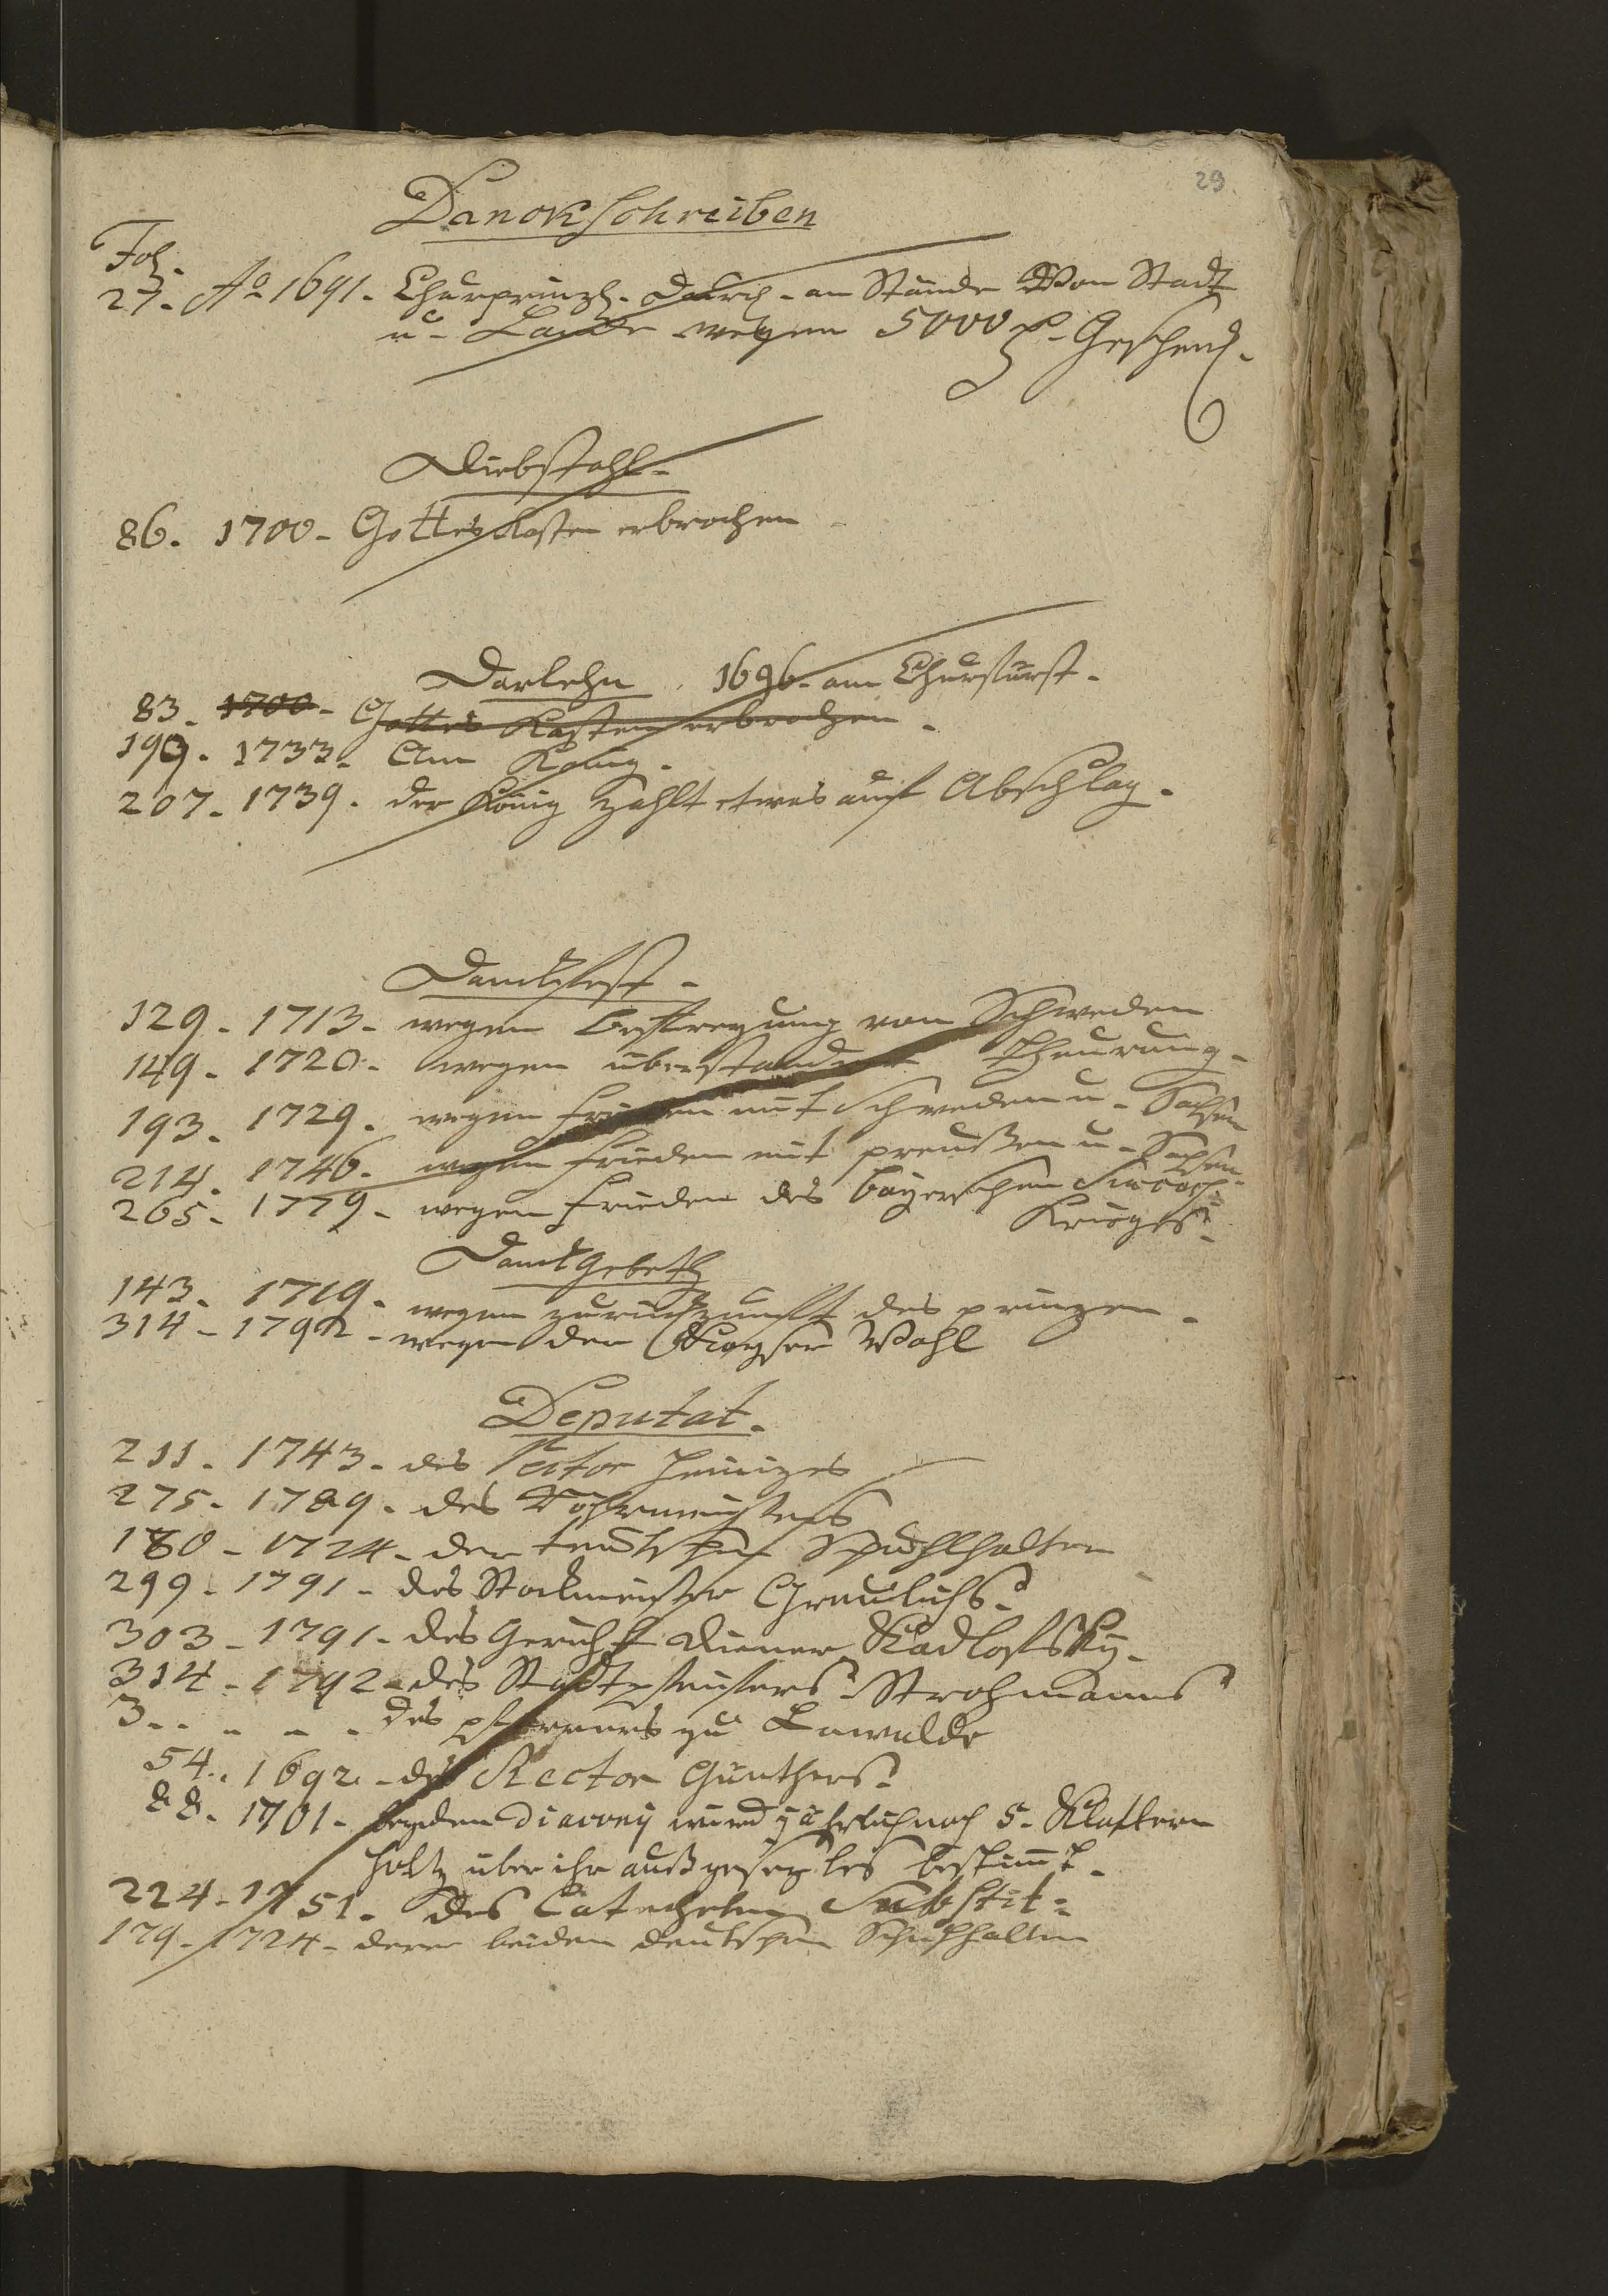 29
Danckschreiben
Fol.
27. Ao 1691. Churprinzl. Durch. an Stände Von Stadt
u. Lande wegen 5000 Geschenk.
Diebstahl.
86. 1700. Gottes Kasten erbrochen
Darlehn. 1696. am Churfürst.
83. 1700. Gottes Kasten erbrochen.
199. 1733. Am König.
207. 1739. der König zahlt etwas auf Abschlag.
Danckfest.
129. 1713. wegen Befreyung von Schweden
149. 1720. wegen überstandener Theurung.
193. 1729. wegen Frieden mit Schweden u. Sachsen
214. 1746. wegen Frieden mit preußen u. Sachsen.
265. 1779. wegen Frieden des bayerschen
Krieges.
Danckgebeth
143. 1719. wegen zurückkunft des prinzen.
314. 1792. wegen der Kayser Wahl
Deputat.
211. 1743. des Rector
275. 1789. des Röhrmeisters
180. 1724. der teutschen Schuhlhalter
299. 1791. des Stockmeister Graulichs.
303. 1791. des Gerichts Diener Kadlofsky.
314. 1792. des Stadtpfeifers Strohmanns
3.. des pfarrers zu Lawalde
54.. 1692. des Rector Günthers.
88. 1701. beyden Diaconij wird jährlich noch 5. Klaftern
Holtz über ihr außgeseztes bestimt.
224. 1751. des Catecheten Substit:
179. 1724. derer beiden deutschen Schulhalter